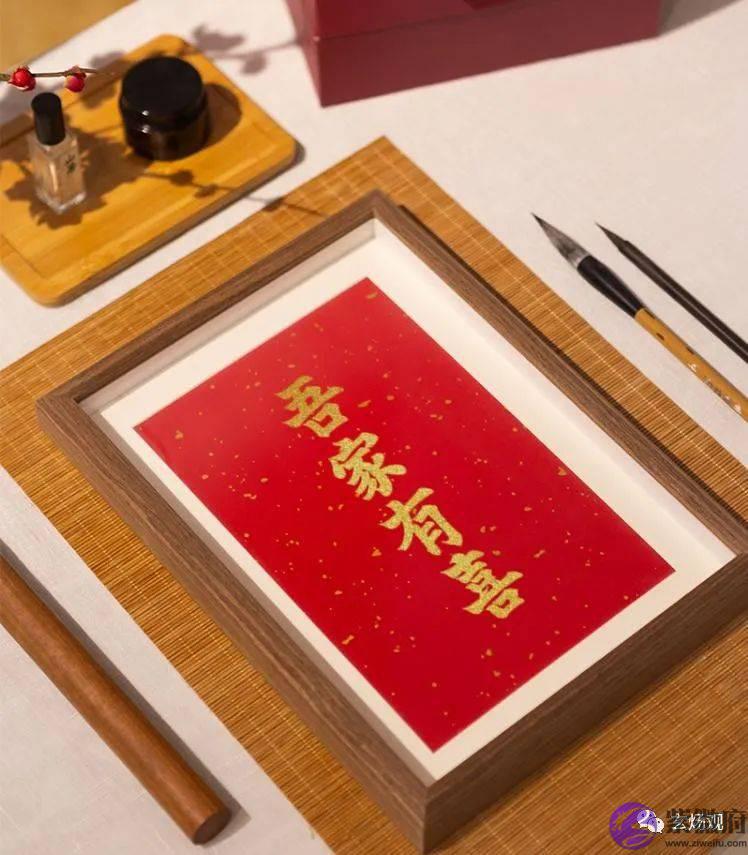 吾家有喜
紫微府
玄炀观
www.ziweifu.com